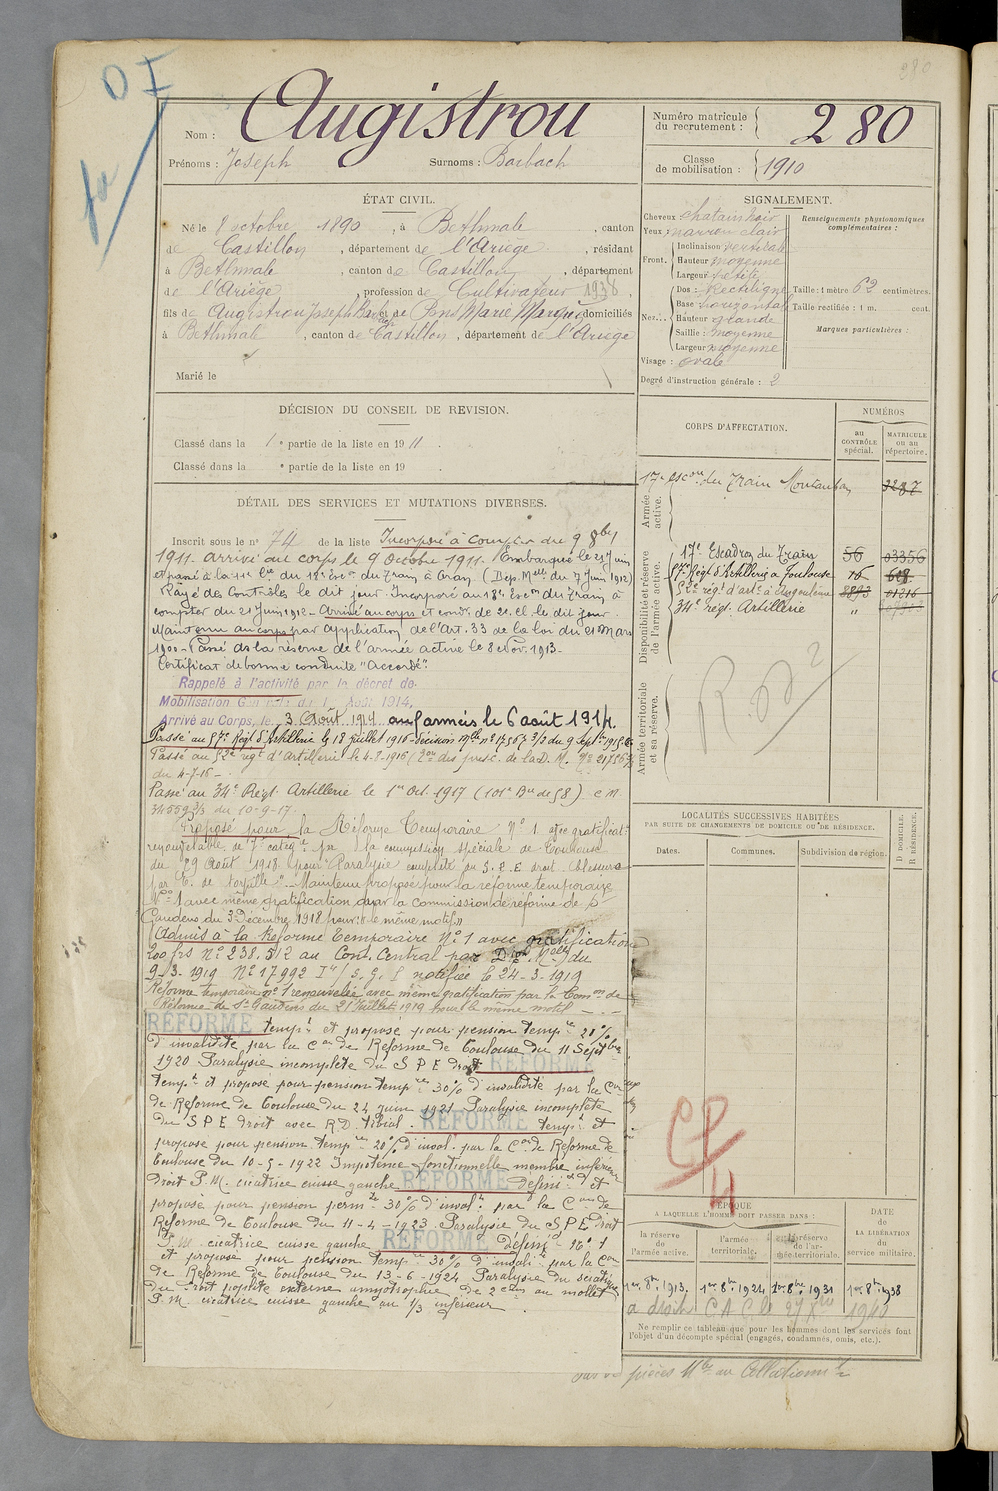 280
OI
Nom : Augistrou
Prénoms : Joseph Surnoms : Barbach
Numéro matricule du recrutement : 280
Classe de mobilisation : 1910
ÉTAT CIVIL.
Né le 8 octobre 1890, à Bethmale, canton
de Castillon, département de l'Ariège, résidant
à Bethmale, canton de Castillon, département
de l'Ariège, profession de Cultivateur 1938,
fils de Augistrou Joseph Barbach et de Pons Marie domiciliés
à Bethmale, canton de Castillon, département de l'Ariège
Marié le
SIGNALEMENT.
Cheveux chatain noir
Yeux : marron clair
Front. Inclinaison verticale
Hauteur moyenne
Largeur petite
Nez... Dos : Rectiligne
Base horizontal
Hauteur grande
Saillie : moyenne
Largeur moyenne
Visage : ovale
Renseignements physionomiques complémentaires :
Taille : 1 mètre 62 centimètres.
Taille rectifiée : 1 m. cent.
Marques particulières :
Degré d'instruction générale : 2
DÉCISION DU CONSEIL DE REVISION.
Classé dans la 1e partie de la liste en 1911.
Classé dans la e partie de la liste en 19 .
CORPS D'AFFECTATION.
NUMÉROS
au CONTRÔLE spécial.
MATRICULE ou au répertoire.
Armée active.
17e Escon du Train Montauban 3287
Disponibilité et réserve de l'armée active.
17e Escadron du Train 56 03356
57e Régt d'Artillerie à Toulouse 16 608
52e régt d'arte à Angoulême 01216
34e régt. Artillerie "
Armée territoriale et sa réserve.
DÉTAIL DES SERVICES ET MUTATIONS DIVERSES.
Inscrit sous le n° 74 de la liste Incorporé à compter du 9 8bre
1911. arrivé au corps le 9 Octobre 1911. Embarqué le 21 Juin
et passé à la 11e Cie du 18e Escon du Train à Oran (Dép. Mlle du 7 Juin 1912)
Rayé des Contrôles le dit jour. Incorporé au 18e Escon du Train à
compter du 21 Juin 1912 - Arrivé au corps et condr de 2e cl. le dit jour
Maintenu au corps par application de l'Art. 33 de la loi du 21 Mars
1900 - Passé ds la réserve de l'armée active le 8 Nov. 1913 -
Certificat de bonne conduite "Accordé".
Rappelé à l'activité par le décret de
Mobilisation Générale du 1er Août 1914,
Arrivé au Corps, le 3 Août 1914 aux armées le 6 août 1914.
Passé au 57e Régt d'Artillerie le 18 juillet 1916 - décision mlle n° 17567 3/3 du 9 Septbre 1915
Passé au 52e régt d'artillerie le 4-8-1916
du 4-7-16 -
Passé au 34e Régt Artillerie le 1er Oct. 1917 (101e Bie de 58) C M
34559 3/3 du 10-9-17
Proposé pour la Réforme Temporaire N° 1 avec gratificat.
renouvelable de 7e catégie par la commission spéciale de Toulouse
du 29 Août 1918 pour "Paralysie complète du S.P.E droit. blessure
par E. de torpille" - Maintenu proposé pour la réforme temporaire
N° 1 avec même gratification par la commission de réforme de St
Gaudens du 3 Décembre 1918 pour "le même motif"
Admis à la Réforme Temporaire N° 1 avec gratification
200 frs N° 238.512 au Cont. Central par Dion Mlle du
9-3-1919 N° 17992 notifiée le 24-3-1919
Réforme temporaire n° 1 renouvelée avec même gratification par la Comon de
Réforme de St Gaudens du 21 Juillet 1919 pour le même motif
RÉFORMÉ tempt et proposé pour pension tempre 20%
d'invalidité par la Con de Réforme de Toulouse du 11 Septbre
1920 Paralysie incomplète du S P E droit RÉFORMÉ
tempt et proposé pour pension tempre 30% d'invalidité par la Con
de Réforme de Toulouse du 24 juin 1921 Paralysie incomplète
du S P E droit avec R.D. tibial. RÉFORMÉ tempt et
proposé pour pension tempre 20% d'inval. par la Con de Réforme de
Toulouse du 10-5-1922 Impotence fonctionnelle membre inférieur
droit P.M. cicatrice cuisse gauche RÉFORMÉ définit et
proposé pour pension perm 30% d'inval. par la Con de
Réforme de Toulouse du 11-4-1923. Paralysie du S P E droit
P.M. cicatrice cuisse gauche RÉFORMÉ définit n° 1
et proposé pour pension temp 30% d'invali. par la Con
de Réforme de Toulouse du 13-6-1924 Paralysie du sciatique
du droit poplité externe amyotrophie de 2 ctm au mollet
P.M. cicatrice cuisse gauche au 1/3 inférieur
LOCALITÉS SUCCESSIVES HABITÉES
PAR SUITE DE CHANGEMENTS DE DOMICILE OU DE RÉSIDENCE.
Dates. Communes. Subdivision de région. D DOMICILE. R RÉSIDENCE.
ÉPOQUE
A LAQUELLE L'HOMME DOIT PASSER DANS :
la réserve de l'armée active.
l'armée territoriale.
la réserve de l'armée territoriale.
DATE de LA LIBÉRATION du service militaire.
1er 8bre 1913. 1er 8bre 1924 1er 8bre 1931 1er 8bre 1938
Ne remplir ce tableau que pour les hommes dont les services font
l'objet d'un décompte spécial (engagés, condamnés, omis, etc.).